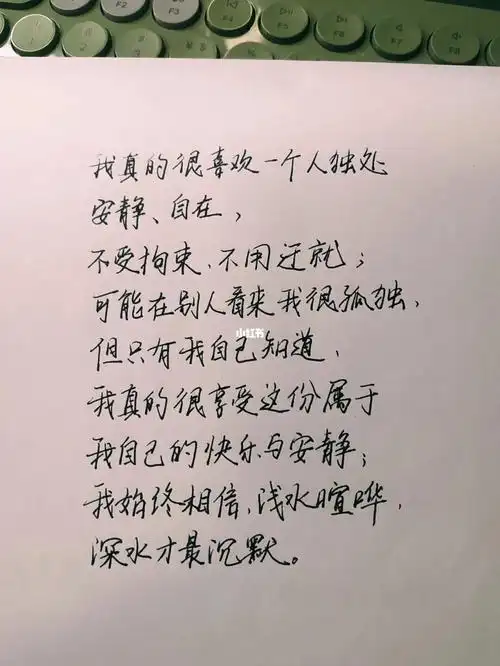 F2
F3
F4
F5
F6
F7
F8
2
我真的很喜欢一个人独处
安静、自在，
不受拘束、不用迁就；
可能在别人看来我很孤独，
小红书
但只有我自己知道，
我真的很享受这份属于
我自己的快乐与安静；
我始终相信，浅水喧哗，
深水才最沉默。